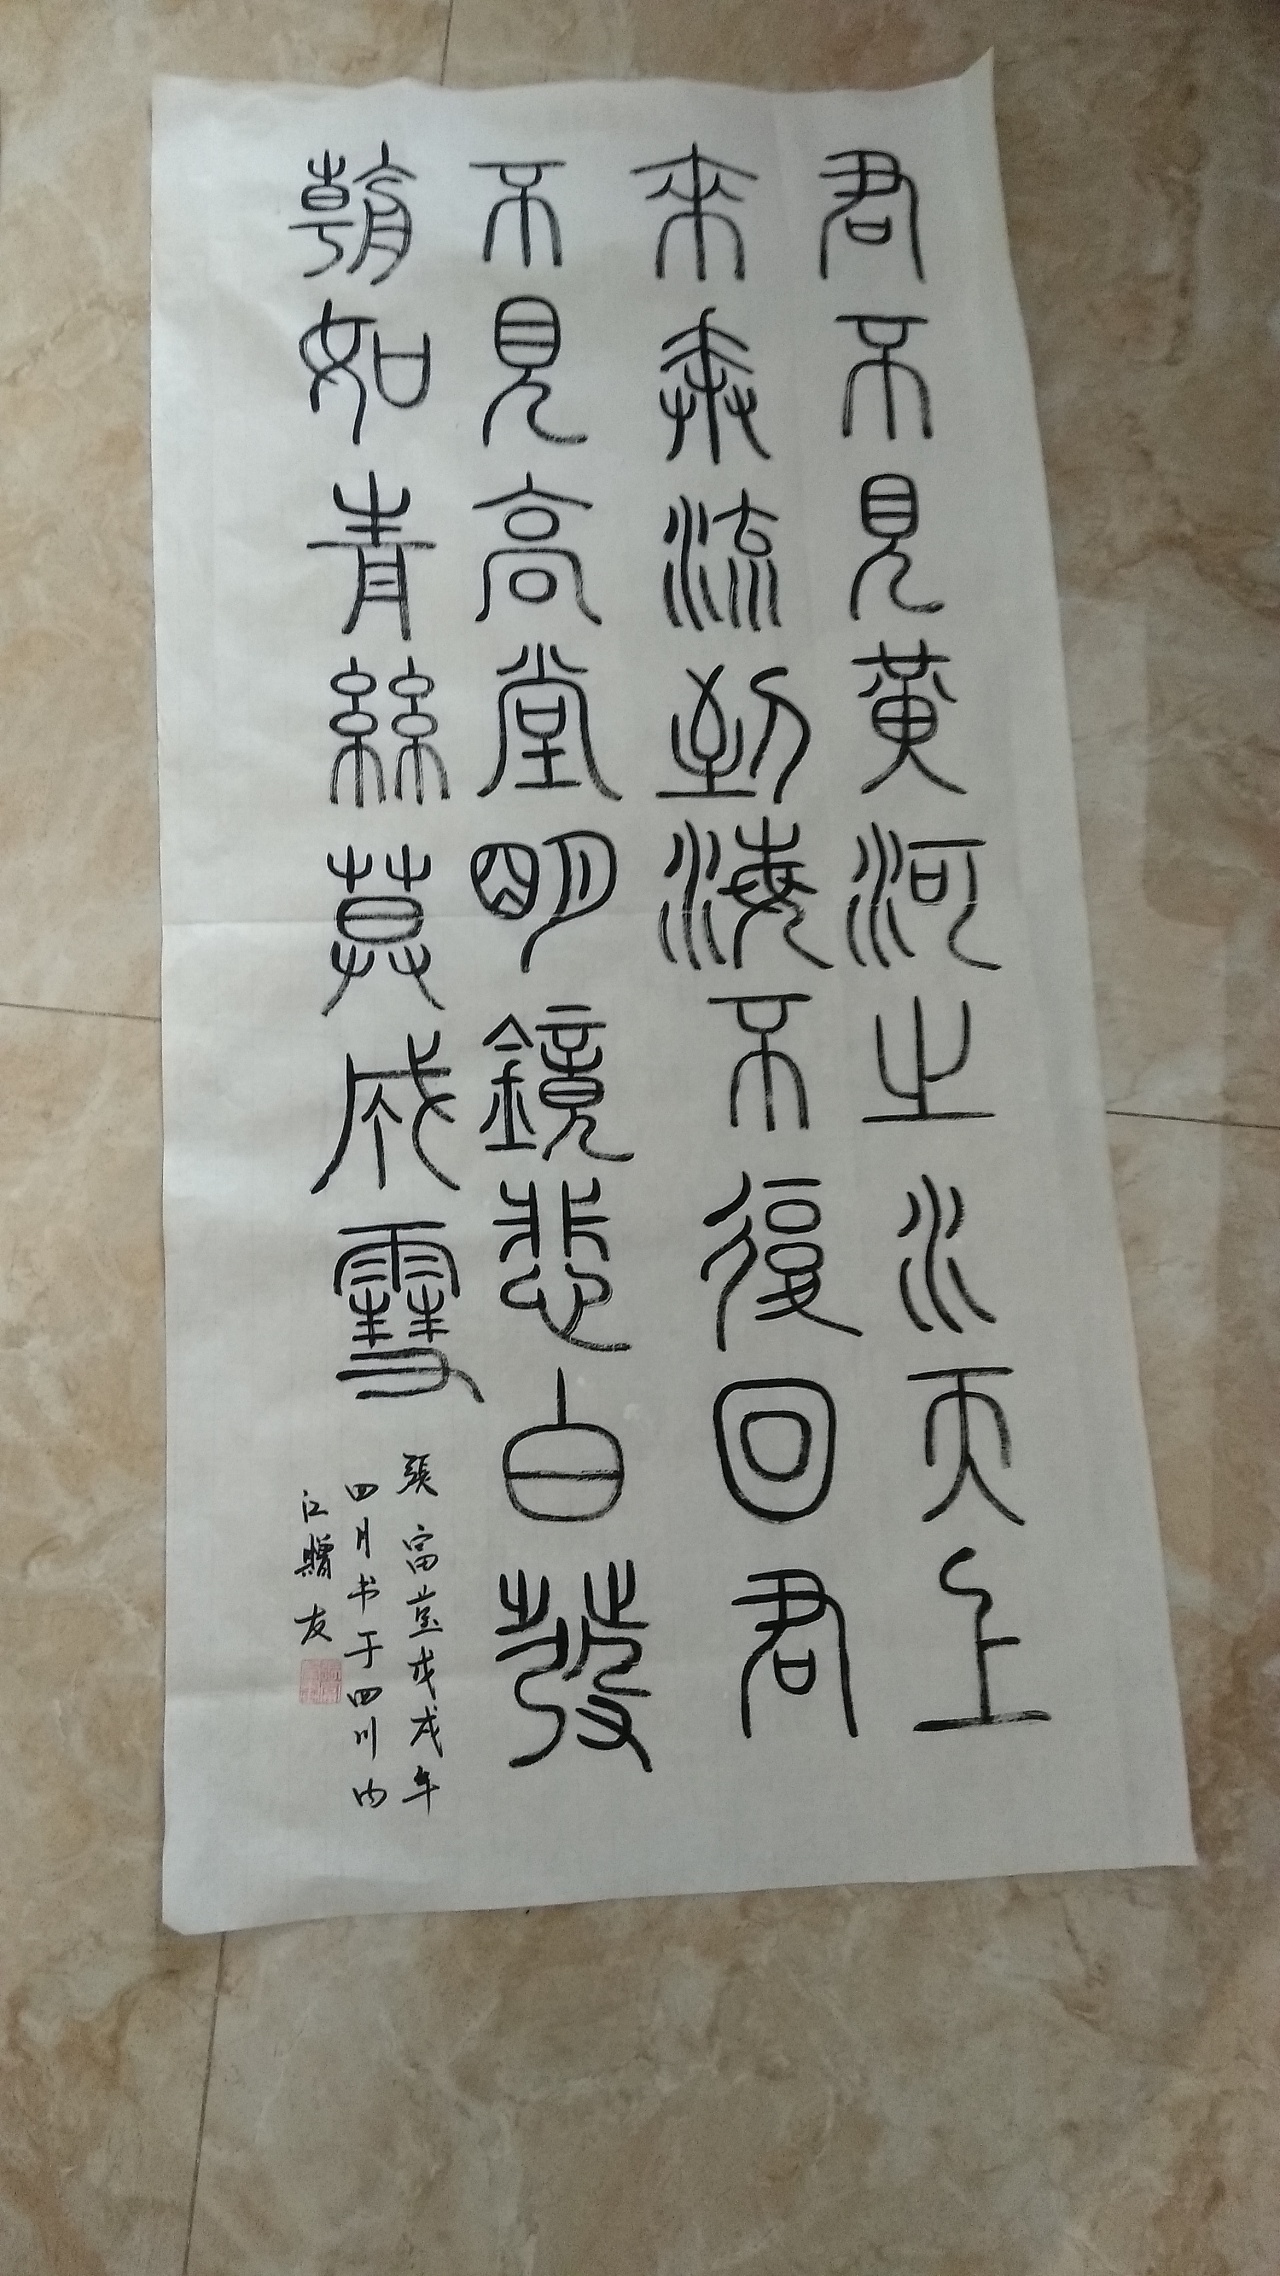 君不見黃河之水天上
來奔流到海不復回君
不見高堂明鏡悲白發
朝如青絲莫成雪
張富戊戌年
四月书于四川内
江贈友